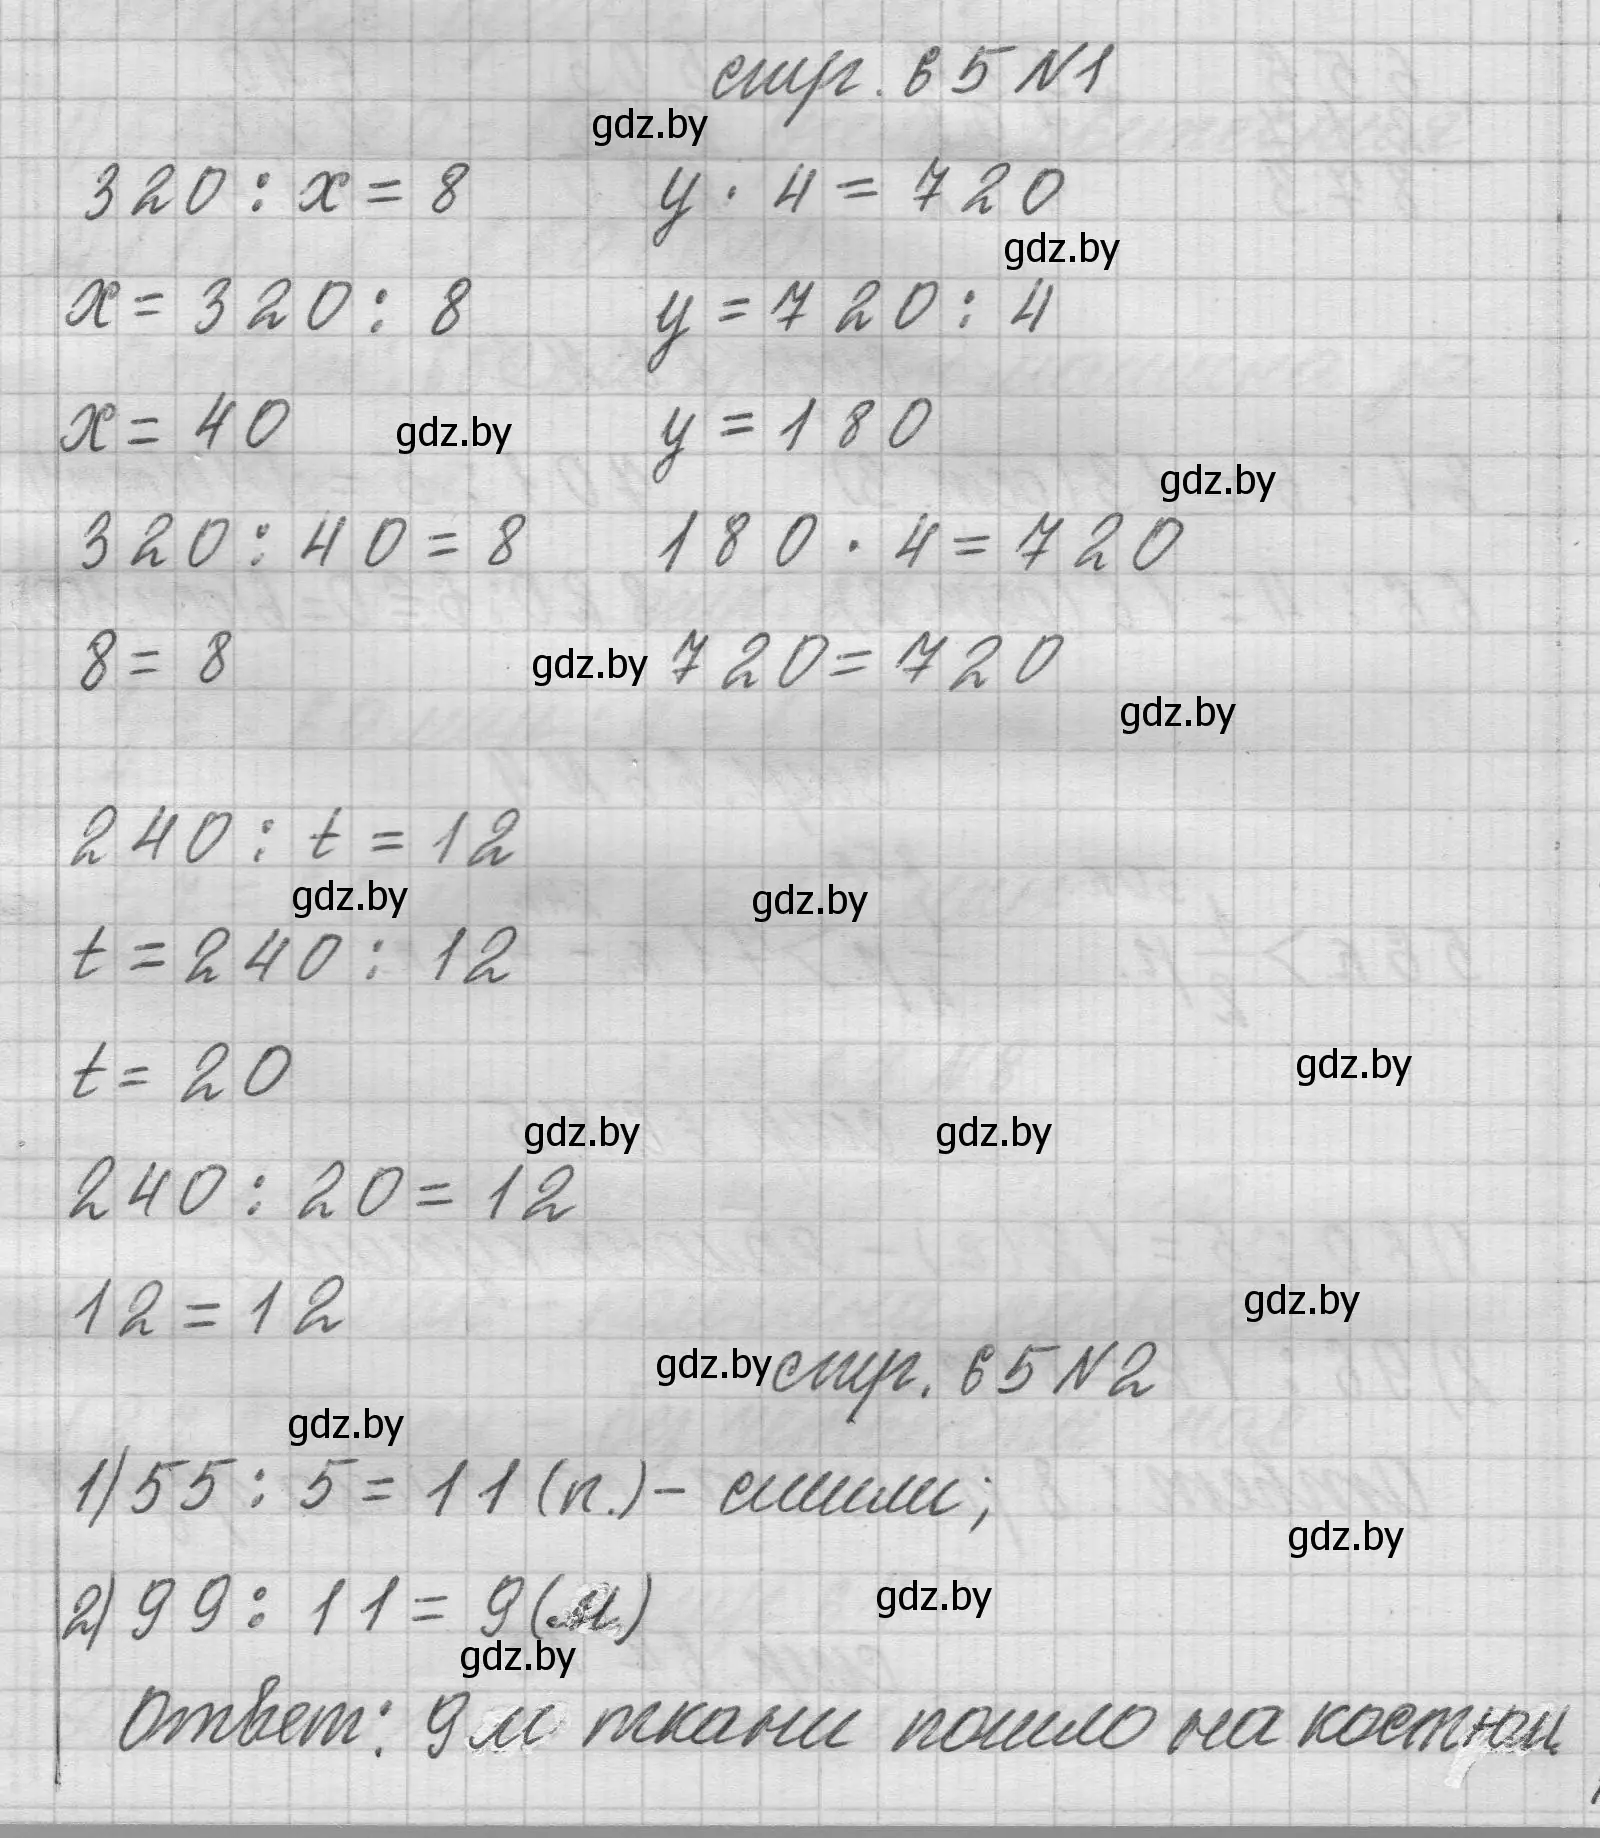 стр. 65 №1
gdz.by
320 : x = 8 y · 4 = 720
gdz.by
x = 320 : 8 y = 720 : 4
x = 40 gdz.by y = 180
gdz.by
320 : 40 = 8 180 · 4 = 720
8 = 8 gdz.by 720 = 720
gdz.by
240 : t = 12
gdz.by gdz.by
t = 240 : 12
t = 20 gdz.by
gdz.by gdz.by
240 : 20 = 12
12 = 12 gdz.by
gdz.by стр. 65 №2
gdz.by
1) 55 : 5 = 11 (п.) – сшили;
gdz.by
2) 99 : 11 = 9 (м.) gdz.by
gdz.by
Ответ: 9 м ткани пошло на костюм.